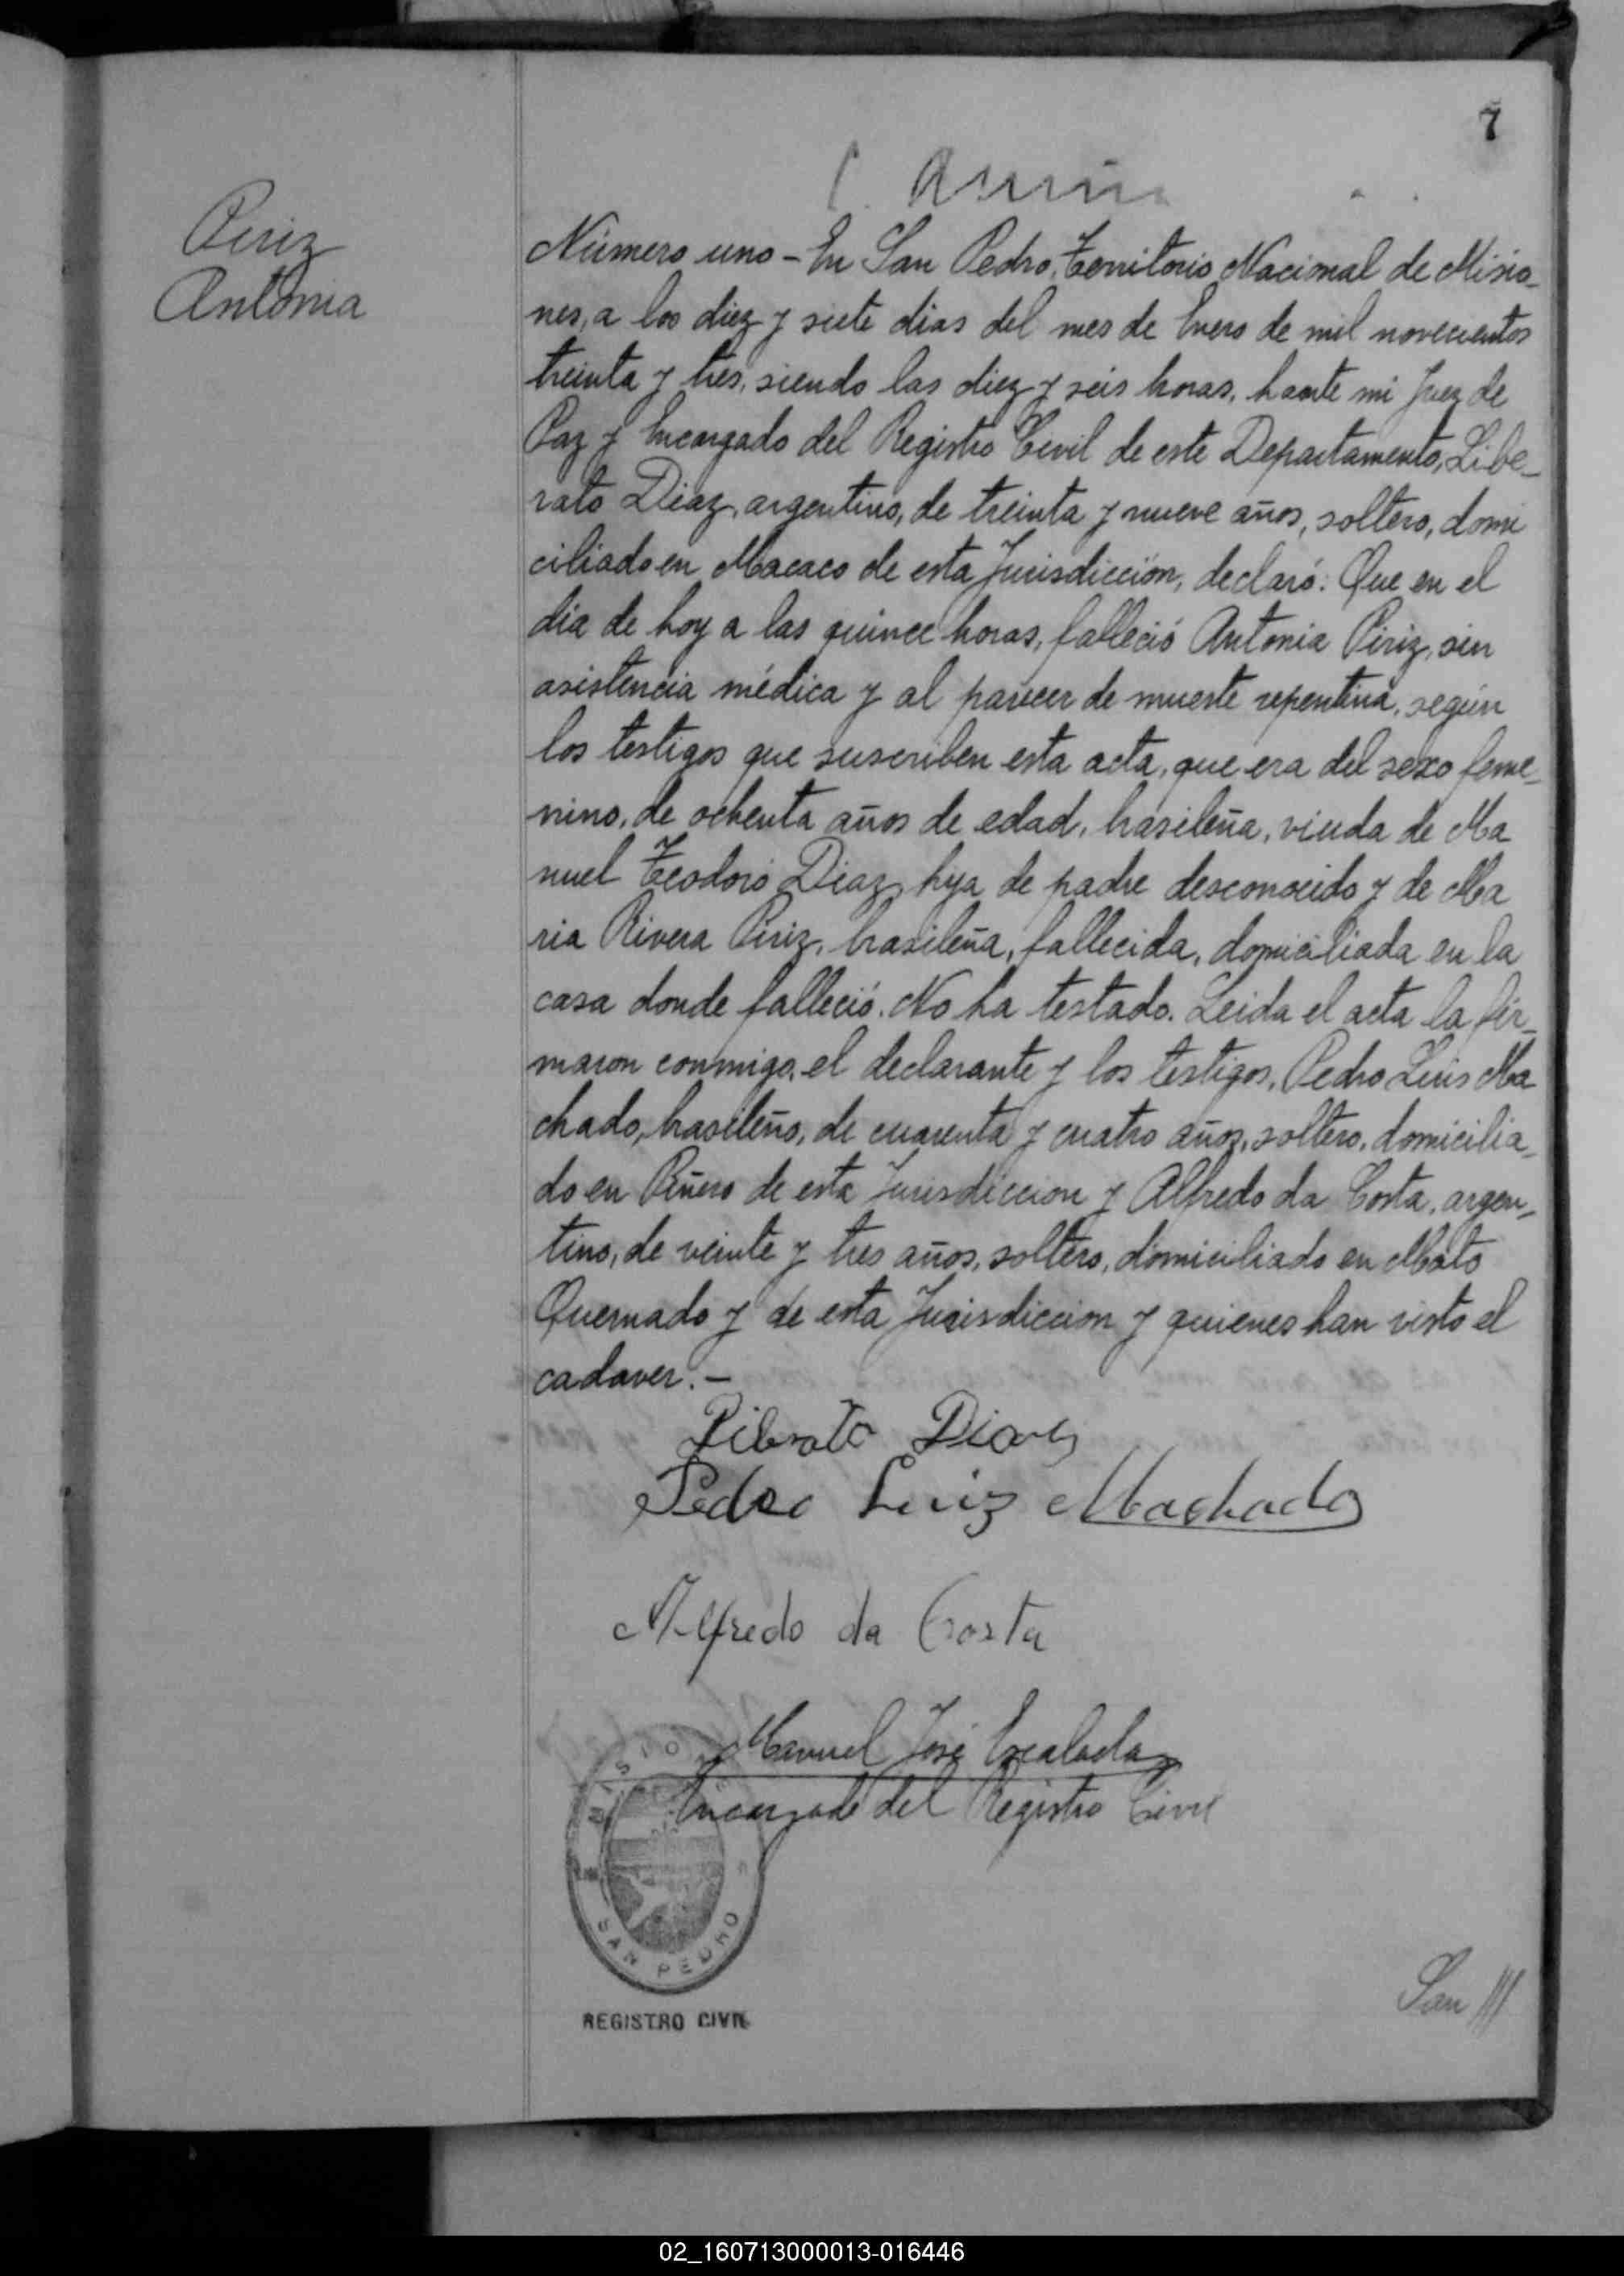 7
Piriz
Antonia
Número uno - En San Pedro, Territorio Nacional de Misio_
nes, a los diez y siete dias del mes de Enero de mil novecientos
treinta y tres, siendo las diez y seis horas, hante mi Juez de
Paz y Encargado del Registro Civil de este Departamento, Libe_
rato Diaz, argentino, de treinta y nueve años, soltero, domi
ciliado en Macaco de esta Jurisdicción, declaró: Que en el
dia de hoy a las quince horas, falleció Antonia Piriz, sin
asistencia médica y al parecer de muerte repentina, según
los testigos que suscriben esta acta, que era del sexo feme_
nino, de ochenta años de edad, brasileña, viuda de Ma
nuel Teodoro Diaz, hija de padre desconocido y de Ma
ria Rivera Piriz, brasileña, fallecida, domiciliada en la
casa donde falleció. No ha testado. Leida el acta la fir_
maron conmigo, el declarante y los testigos, Pedro Luis Ma
chado, brasileño, de cuarenta y cuatro años, soltero, domicilia_
do en Piñero de esta Jurisdiccion y Alfredo da Costa, argen_
tino, de veinte y tres años, soltero, domiciliado en Mato
Quemado y de esta Jurisdiccion y quienes han visto el
cadaver. -
Liberato Diaz
Pedro Luiz Machado
Alfredo da Costa
Manuel José Escalada
Encargado del Registro Civil
SAN PEDRO
REGISTRO CIVIL
San ///
02_160713000013-016446